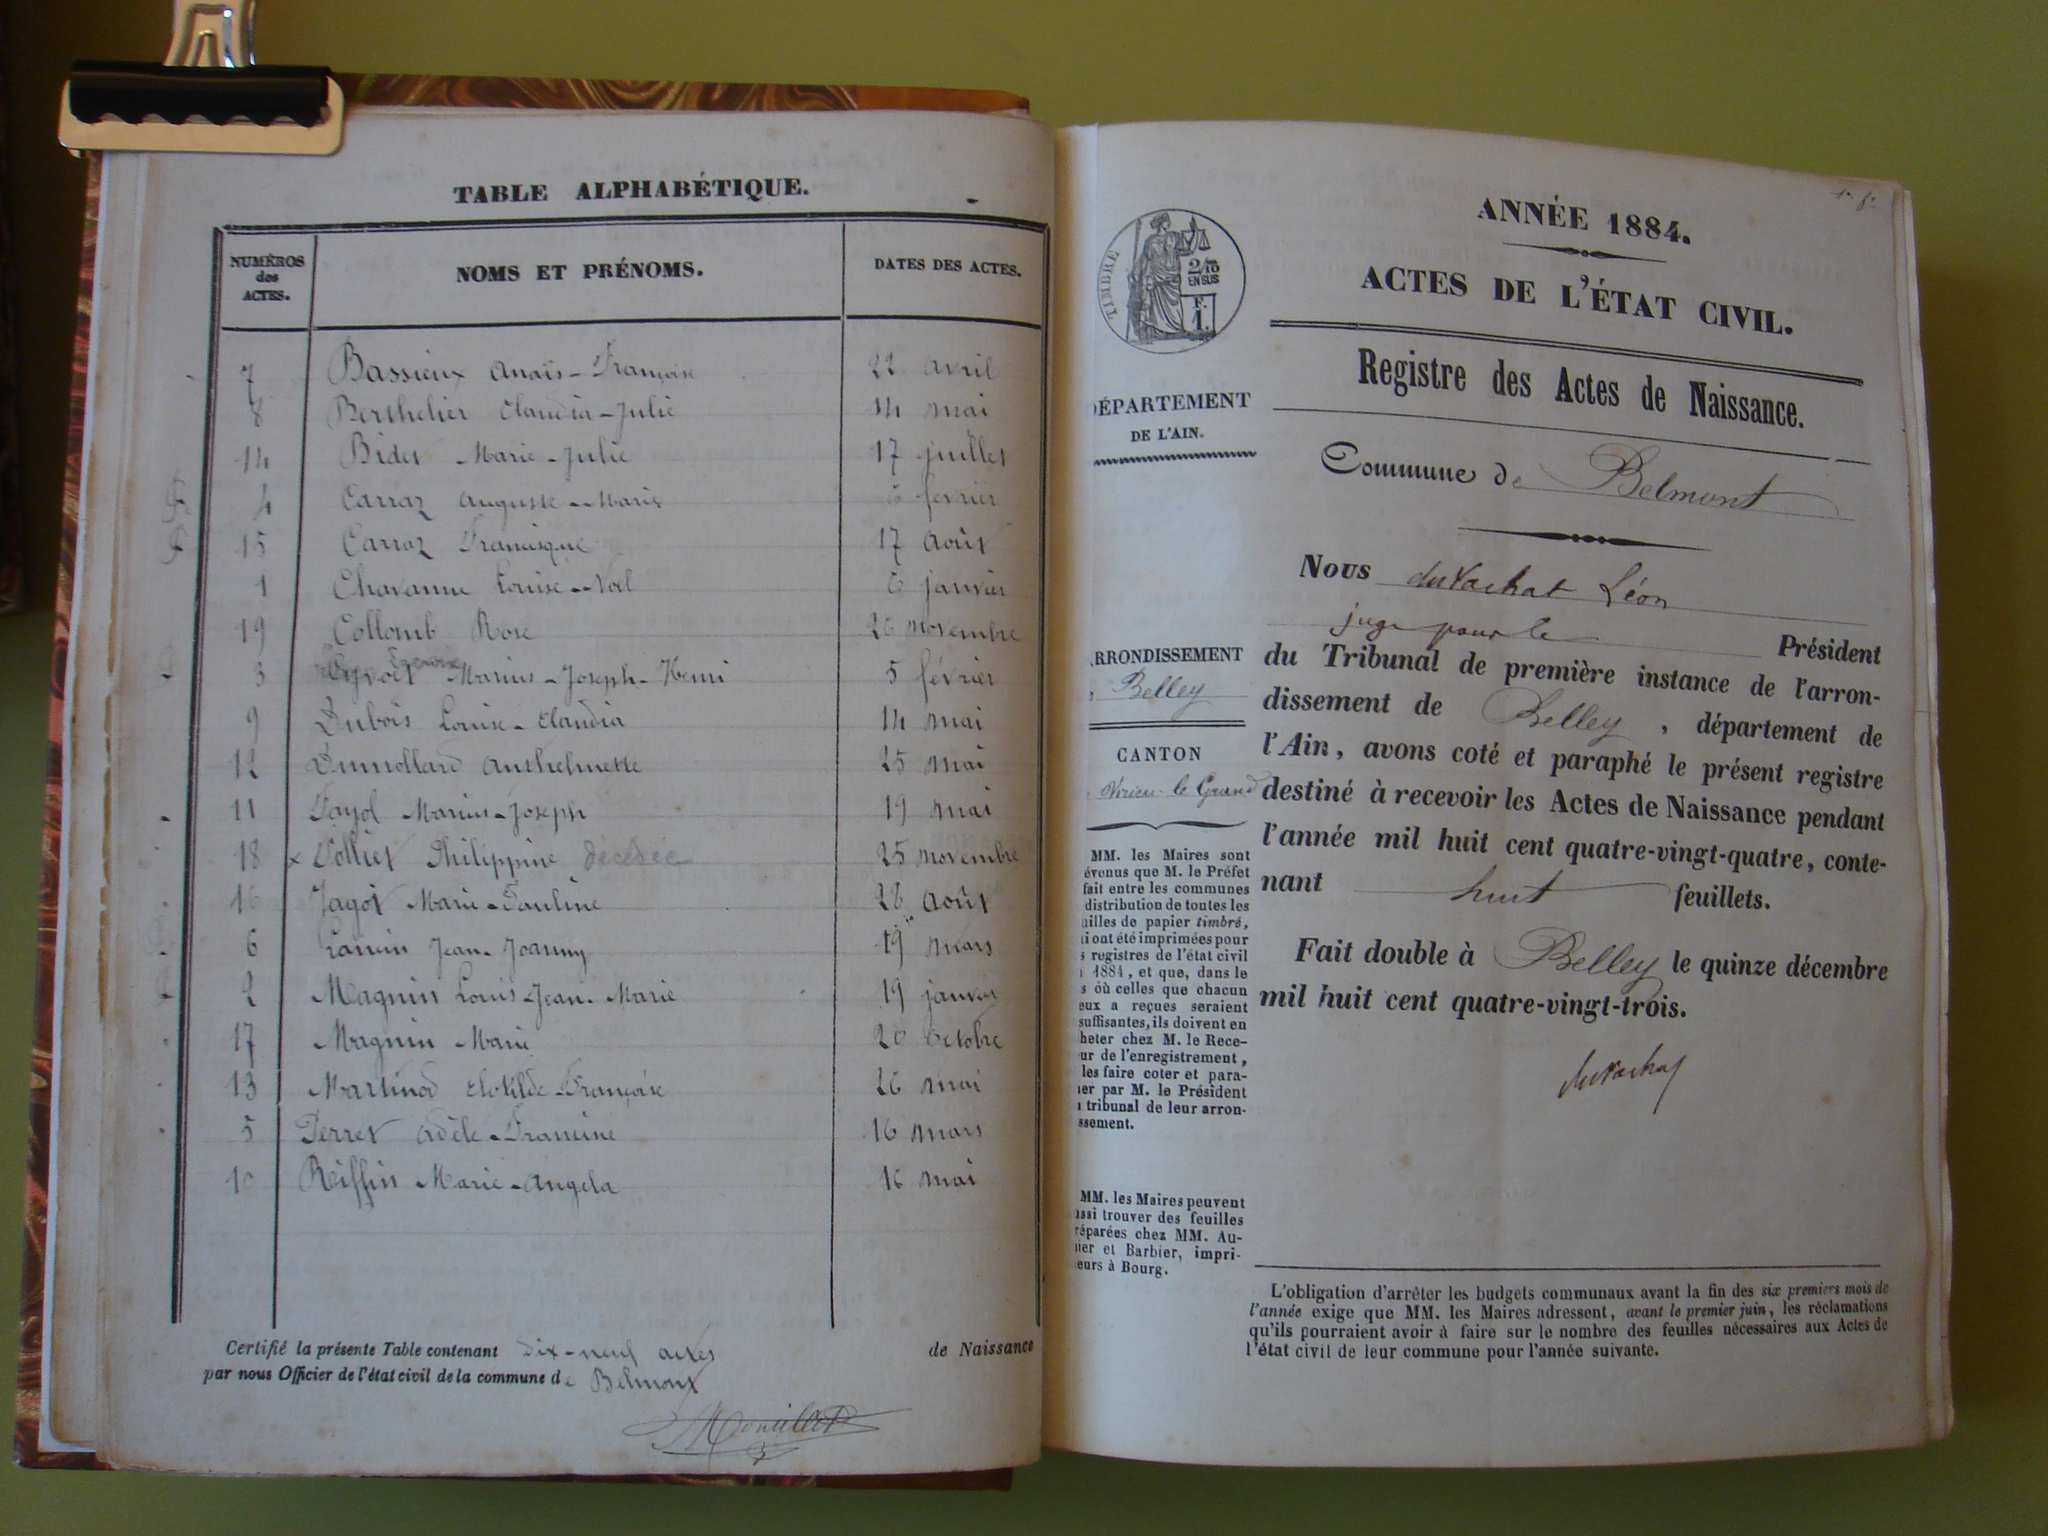 TABLE ALPHABÉTIQUE.
NUMÉROS
des
ACTES.
NOMS ET PRÉNOMS.
DATES DES ACTES.
7 Bassieux Anaïs-Françoise 22 avril
8 Berthelier Claudia-Julie 14 mai
14 Bidet Marie-Julie 17 juillet
4 Carraz Auguste-Marie février
15 Carraz Francisque 17 Août
1 Chavanne Louise-Noël 6 janvier
19 Collomb Rose 26 novembre
3 Marius-Joseph-Henri 5 février
9 Dubois Louise-Claudia 14 mai
12 Dumollard Anthelmette 25 mai
11 Fayol Marius-Joseph 19 mai
18 x Folliet Philippine décédée 25 novembre
16 Jagot Marie-Pauline 28 Août
6 Jean-Joanny 19 mars
2 Magnin Louis-Jean-Marie 19 janvier
17 Magnin Marie 20 Octobre
13 Martinod Clotilde-Françoise 26 mai
5 Perret Adèle-Francine 16 mars
10 Riffin Marie-Angela 16 mai
Certifié la présente Table contenant dix-neuf actes de Naissance
par nous Officier de l'état civil de la commune de Belmont
ANNÉE 1884.
ACTES DE L'ÉTAT CIVIL.
Registre des Actes de Naissance.
TIMBRE
2/10
EN SUS
F.
1.
DÉPARTEMENT
DE L'AIN.
Commune de Belmont
Nous duVachat Léon
juge pour le Président
du Tribunal de première instance de l'arron-
dissement de Belley, département de
l'Ain, avons coté et paraphé le présent registre
destiné à recevoir les Actes de Naissance pendant
l'année mil huit cent quatre-vingt-quatre, conte-
nant huit feuillets.
Fait double à Belley le quinze décembre
mil huit cent quatre-vingt-trois.
duVachat
ARRONDISSEMENT
Belley
CANTON
Virieu-le-Grand
MM. les Maires sont
évenus que M. le Préfet
fait entre les communes
distribution de toutes les
uilles de papier timbré,
i ont été imprimées pour
s registres de l'état civil
1884, et que, dans le
s où celles que chacun
eux a reçues seraient
suffisantes, ils doivent en
heter chez M. le Rece-
ur de l'enregistrement,
les faire coter et para-
er par M. le Président
tribunal de leur arron-
ssement.
MM. les Maires peuvent
ussi trouver des feuilles
réparées chez MM. Au-
ier et Barbier, impri-
eurs à Bourg.
L'obligation d'arrêter les budgets communaux avant la fin des six premiers mois de
l'année exige que MM. les Maires adressent, avant le premier juin, les réclamations
qu'ils pourraient avoir à faire sur le nombre des feuilles nécessaires aux Actes de
l'état civil de leur commune pour l'année suivante.